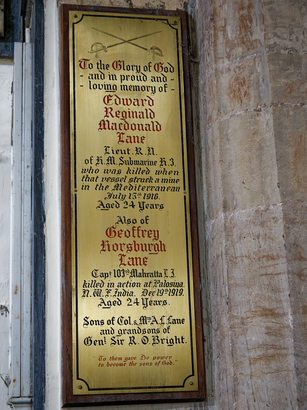 To the Glory of God
- and in proud and -
- loving memory of -
Edward
Reginald
Macdonald
Lane
Lieut. R.N.
of H.M. Submarine E.3.
who was killed when
that vessel struck a mine
in the Mediterranean
July 15th 1918.
Aged 24 Years
Also of
Geoffrey
Horsburgh
Lane
Capt 103rd Mahratta L.I.
killed in action at Palosina
N.W.F. India. Dec 19th 1919.
Aged 24 Years.
Sons of Col. & Mrs A.L. Lane
and grandsons of
Genl Sir R.O. Bright.
"To them gave He power
to become the sons of God."